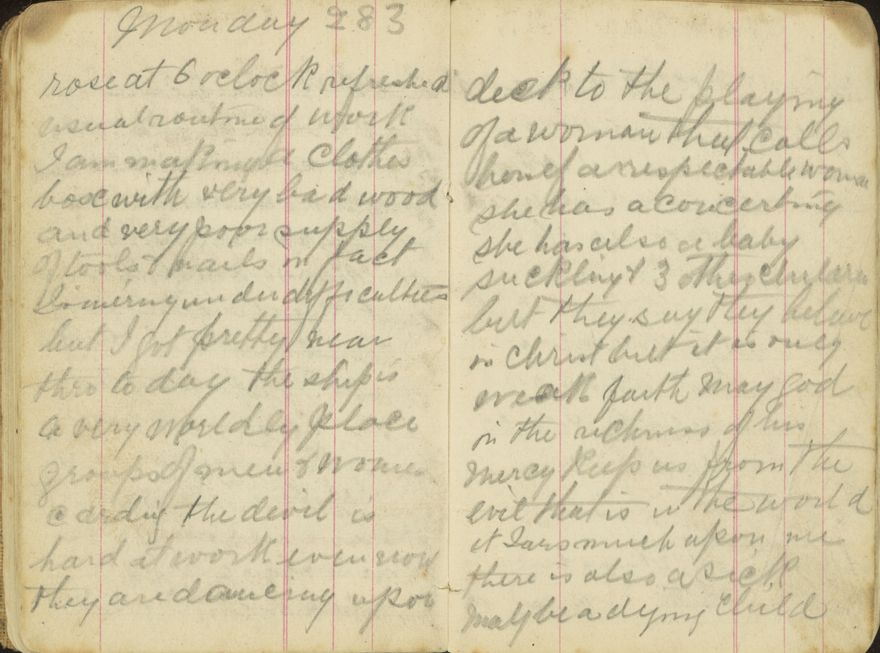 Monday 283
rose at 6 oclock refreshed
usual routine of work
I am making a clothes
box with very bad wood
and very poor supply
of tools & nails in fact
under difficulties
but I got pretty near
thro to day the ship is
a very worldly place
groups of men & women
carding the devil is
hard at work even now
they are dancing upon
deck to the playing
of a woman that calls
herself a respectable woman
she has a concerting
she has also a baby
suckling & 3 other children
but they say they believe
in Christ but it is only
weak faith may god
in the richness of his
mercy keep us from the
evil that is in the world
it Jars much upon me
there is also a sick
maybe a dying child